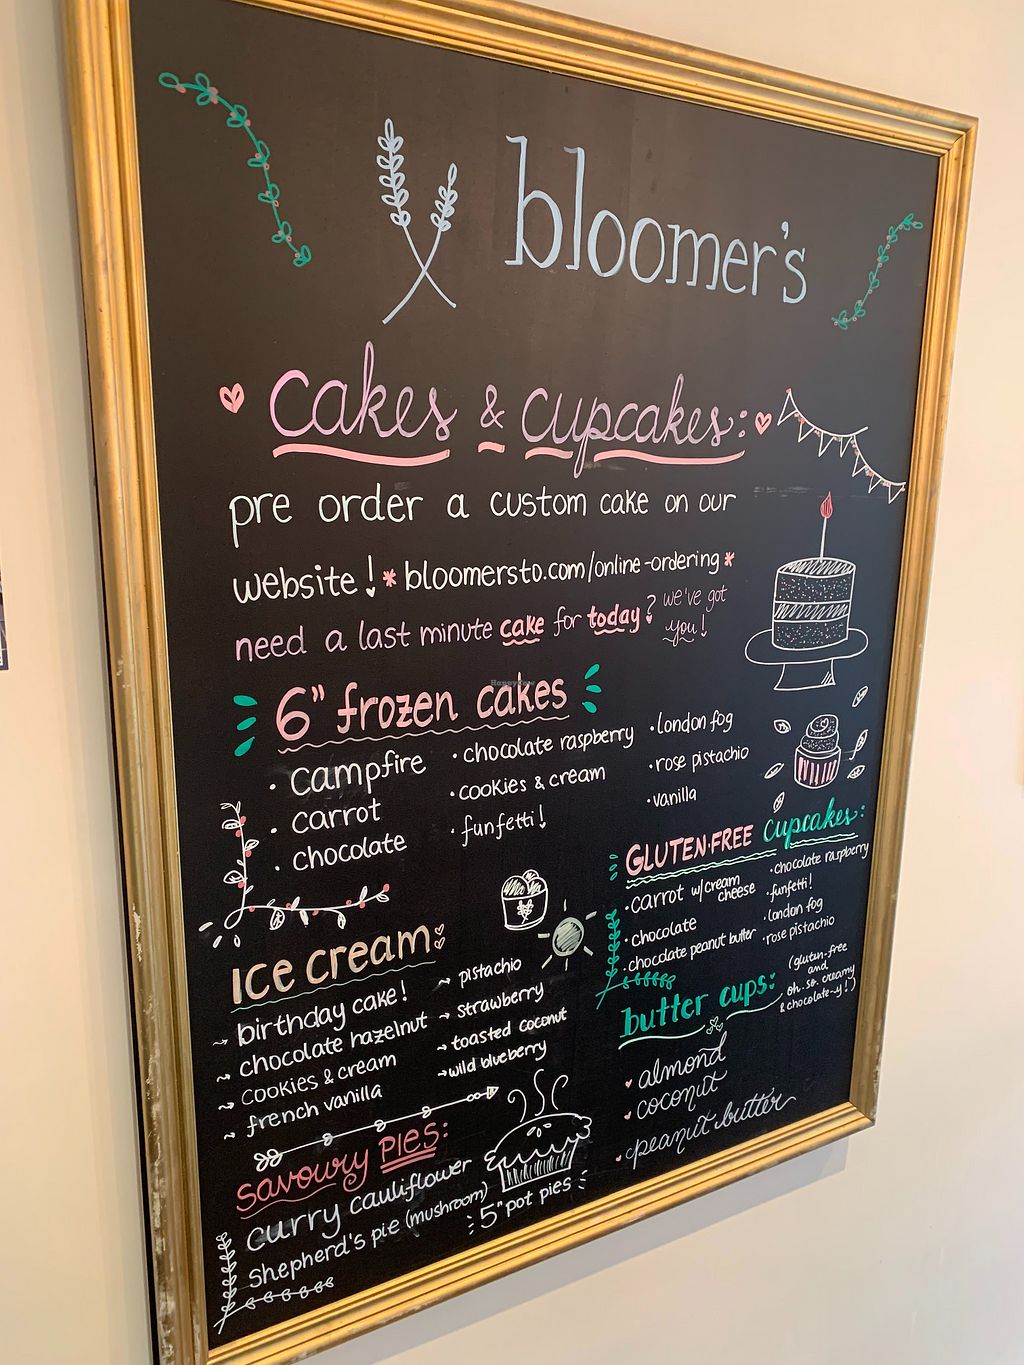 bloomer's
cakes & cupcakes:
pre order a custom cake on our
website! *bloomersto.com/online-ordering*
need a last minute cake for today? we've got
you!
6" frozen cakes
HappyCow
• campfire
• carrot
• chocolate
• chocolate raspberry
• cookies & cream
• funfetti!
• london fog
• rose pistachio
• vanilla
GLUTEN-FREE cupcakes:
• carrot w/cream
cheese
• chocolate
• chocolate peanut butter
• chocolate raspberry
• funfetti!
• london fog
• rose pistachio
Ice cream
→ birthday cake!
→ chocolate hazelnut
→ cookies & cream
→ french vanilla
→ pistachio
→ strawberry
→ toasted coconut
→ wild blueberry
butter cups:
(gluten-free
and
oh-so-creamy
& chocolate-y!)
almond
coconut
peanut butter
savoury PIES:
curry cauliflower
shepherd's pie (mushroom)
5" pot pies